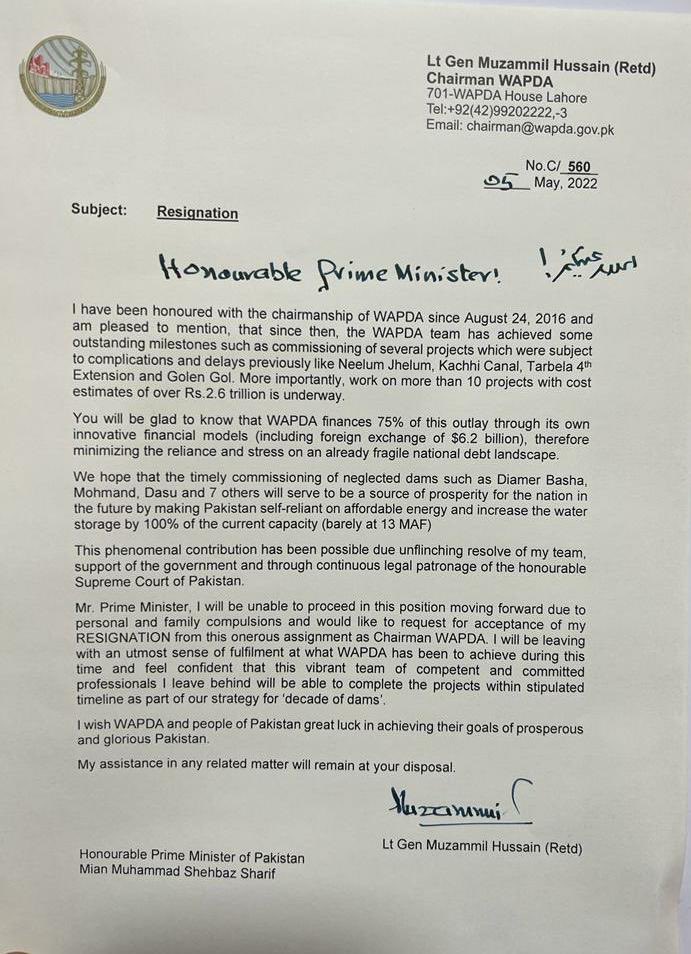 Lt Gen Muzammil Hussain (Retd)
Chairman WAPDA
701-WAPDA House Lahore
Tel:+92(42)99202222,-3
Email: chairman@wapda.gov.pk
No.C/ 560
05 May, 2022
Subject: Resignation
Honourable Prime Minister!
I have been honoured with the chairmanship of WAPDA since August 24, 2016 and
am pleased to mention, that since then, the WAPDA team has achieved some
outstanding milestones such as commissioning of several projects which were subject
to complications and delays previously like Neelum Jhelum, Kachhi Canal, Tarbela 4th
Extension and Golen Gol. More importantly, work on more than 10 projects with cost
estimates of over Rs.2.6 trillion is underway.
You will be glad to know that WAPDA finances 75% of this outlay through its own
innovative financial models (including foreign exchange of $6.2 billion), therefore
minimizing the reliance and stress on an already fragile national debt landscape.
We hope that the timely commissioning of neglected dams such as Diamer Basha,
Mohmand, Dasu and 7 others will serve to be a source of prosperity for the nation in
the future by making Pakistan self-reliant on affordable energy and increase the water
storage by 100% of the current capacity (barely at 13 MAF)
This phenomenal contribution has been possible due unflinching resolve of my team,
support of the government and through continuous legal patronage of the honourable
Supreme Court of Pakistan.
Mr. Prime Minister, I will be unable to proceed in this position moving forward due to
personal and family compulsions and would like to request for acceptance of my
RESIGNATION from this onerous assignment as Chairman WAPDA. I will be leaving
with an utmost sense of fulfilment at what WAPDA has been to achieve during this
time and feel confident that this vibrant team of competent and committed
professionals I leave behind will be able to complete the projects within stipulated
timeline as part of our strategy for 'decade of dams'.
I wish WAPDA and people of Pakistan great luck in achieving their goals of prosperous
and glorious Pakistan.
My assistance in any related matter will remain at your disposal.
Muzammil
Lt Gen Muzammil Hussain (Retd)
Honourable Prime Minister of Pakistan
Mian Muhammad Shehbaz Sharif